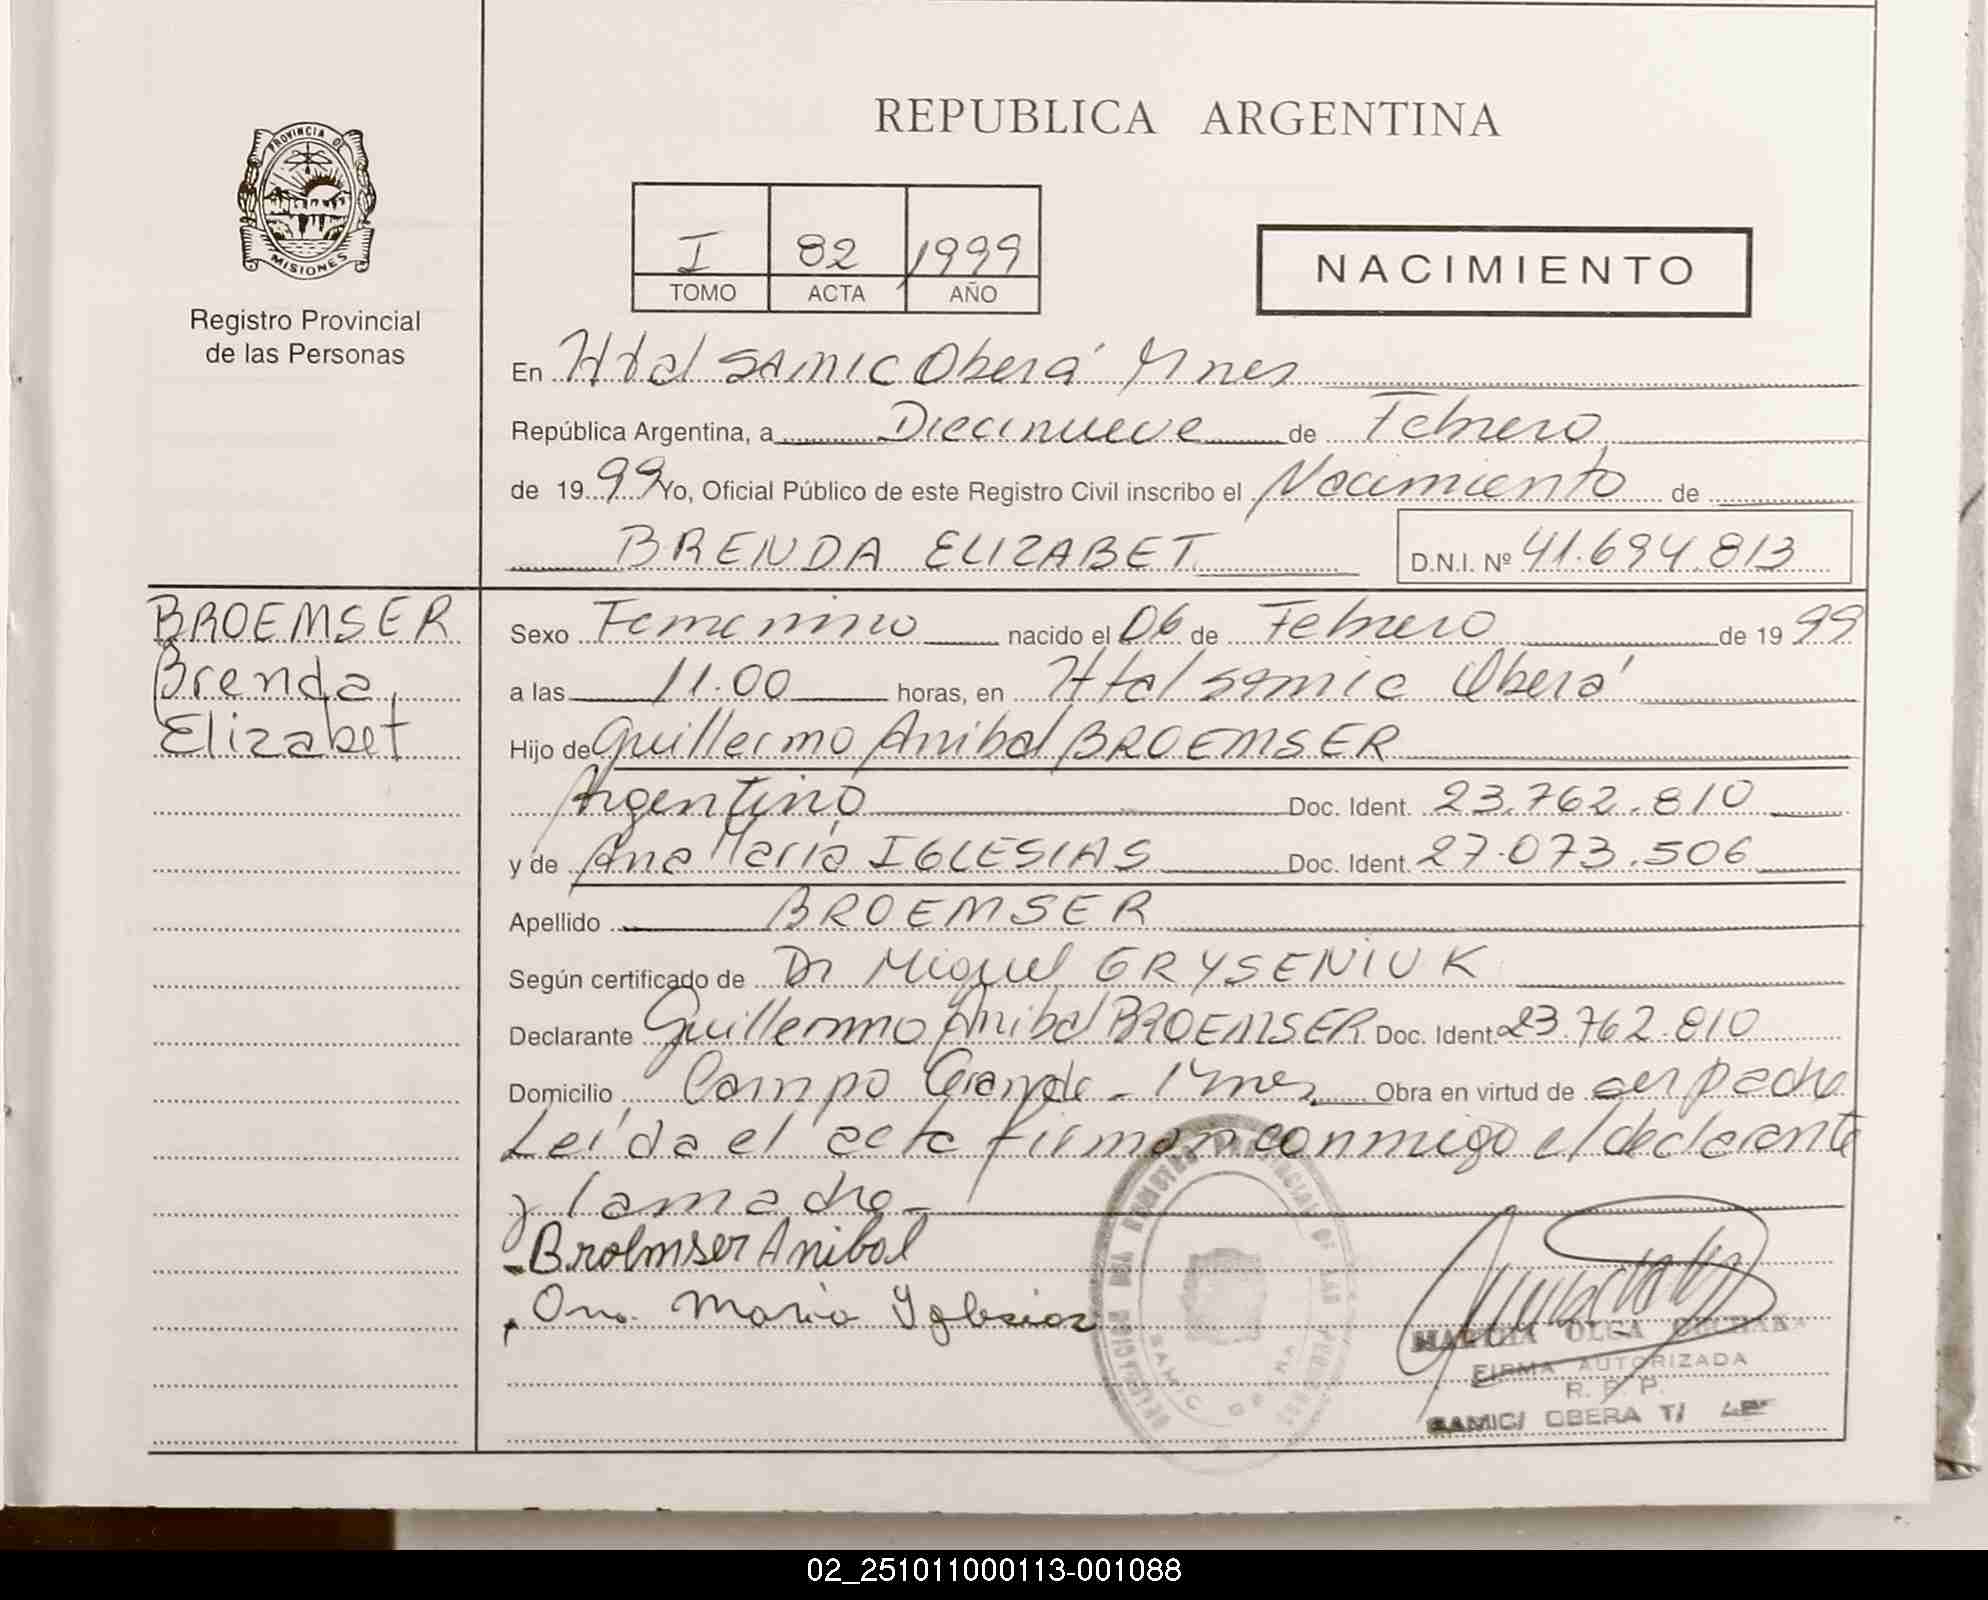 REPUBLICA ARGENTINA
PROVINCIA DE
MISIONES
Registro Provincial
de las Personas
I 82 1999
TOMO ACTA AÑO
NACIMIENTO
En Htal SAMIC Oberá Mnes
República Argentina, a Diecinueve de Febrero
de 1999 Yo, Oficial Público de este Registro Civil inscribo el Nacimiento de
BRENDA ELIZABET D.N.I. Nº 41.694.813
BROEMSER
Brenda
Elizabet
Sexo Femenino nacido el 06 de Febrero de 1999
a las 11.00 horas, en Htal samic Oberá
Hijo de Guillermo Anibal BROEMSER
Argentino Doc. Ident. 23.762.810
y de Ana María IGLESIAS Doc. Ident. 27.073.506
Apellido BROEMSER
Según certificado de Dr Miguel GRYSENIUK
Declarante Guillermo Anibal BROEMSER Doc. Ident. 23.762.810
Domicilio Campo Grande - Mnes Obra en virtud de ser padre
Leída el acta firman conmigo el declarante
y la madre-
Broemser Anibal
Ana Maria Yglesias
OLGA
FIRMA AUTORIZADA
R. P. P.
SAMIC/ OBERA T/
SAMIC OBERA
02_251011000113-001088